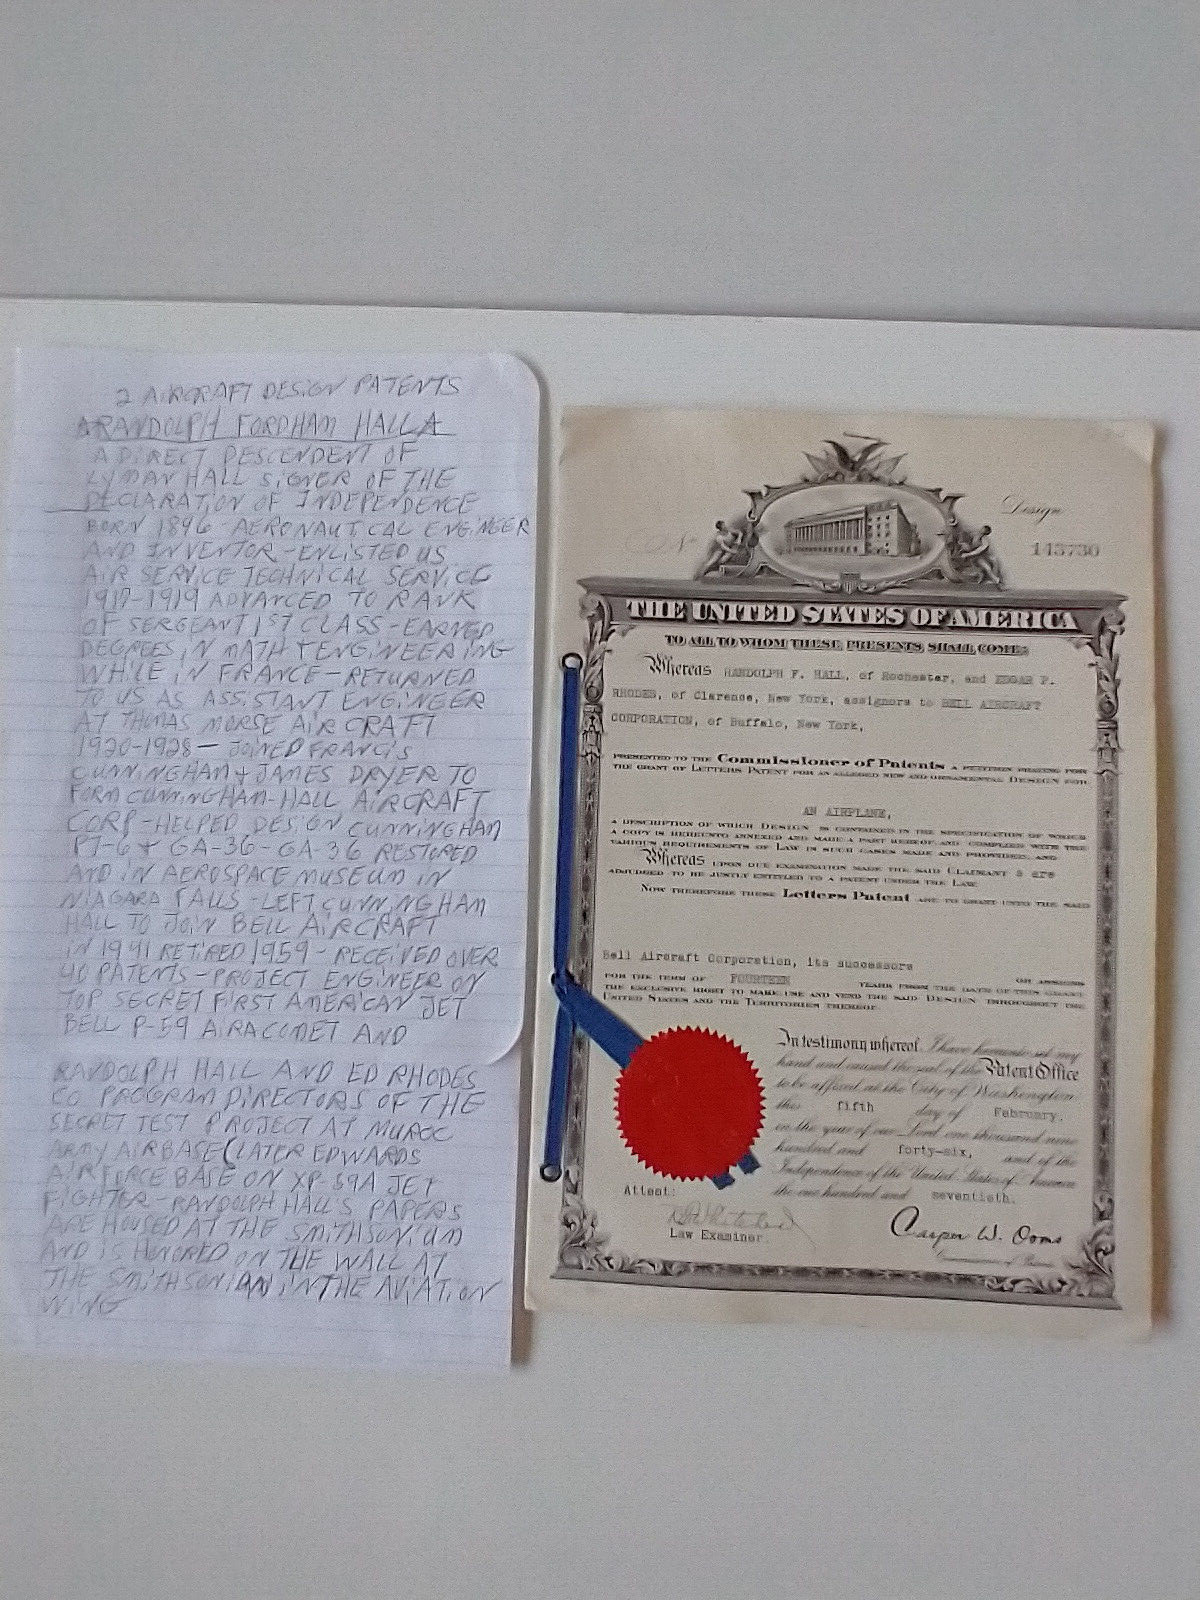 2 AIRCRAFT DESIGN PATENTS
RANDOLPH FORDHAM HALL
A DIRECT DESCENDENT OF
LYMAN HALL SIGNER OF THE
DECLARATION OF INDEPENDENCE
BORN 1896 - AERONAUTICAL ENGINEER
AND INVENTOR - ENLISTED US
AIR SERVICE TECHNICAL SERVICE
1917-1919 ADVANCED TO RANK
OF SERGEANT 1ST CLASS - EARNED
DEGREES IN MATH + ENGINEERING
WHILE IN FRANCE - RETURNED
TO US AS ASSISTANT ENGINEER
AT THOMAS MORSE AIRCRAFT
1920-1928 - JOINED FRANCIS
CUNNINGHAM + JAMES DRYER TO
FORM CUNNINGHAM-HALL AIRCRAFT
CORP - HELPED DESIGN CUNNINGHAM
PT-6 + GA-36 - GA-36 RESTORED
AND IN AEROSPACE MUSEUM IN
NIAGARA FALLS - LEFT CUNNINGHAM
HALL TO JOIN BELL AIRCRAFT
IN 1941 RETIRED 1959 - RECEIVED OVER
40 PATENTS - PROJECT ENGINEER ON
TOP SECRET FIRST AMERICAN JET
BELL P-59 AIRACOMET AND
RANDOLPH HALL AND ED RHODES
CO PROGRAM DIRECTORS OF THE
SECRET TEST PROJECT AT MUROC
ARMY AIRBASE (LATER EDWARDS
AIR FORCE BASE ON XP-59A JET
FIGHTER - RANDOLPH HALL'S PAPERS
ARE HOUSED AT THE SMITHSONIAN
AND IS HONORED ON THE WALL AT
THE SMITHSONIAN IN THE AVIATION
WING
Design
No
143730
THE UNITED STATES OF AMERICA
TO ALL TO WHOM THESE PRESENTS SHALL COME:
Whereas RANDOLPH F. HALL, of Rochester, and EDGAR P.
RHODES, of Clarence, New York, assignors to BELL AIRCRAFT
CORPORATION, of Buffalo, New York,
PRESENTED TO THE Commissioner of Patents A PETITION PRAYING FOR
THE GRANT OF LETTERS PATENT FOR AN ALLEGED NEW AND ORNAMENTAL DESIGN FOR
AN AIRPLANE,
A DESCRIPTION OF WHICH DESIGN IS CONTAINED IN THE SPECIFICATION OF WHICH
A COPY IS HEREUNTO ANNEXED AND MADE A PART HEREOF AND COMPLIED WITH THE
VARIOUS REQUIREMENTS OF LAW IN SUCH CASES MADE AND PROVIDED, AND
Whereas UPON DUE EXAMINATION MADE THE SAID CLAIMANT s are
ADJUDGED TO BE JUSTLY ENTITLED TO A PATENT UNDER THE LAW.
NOW THEREFORE THESE Letters Patent ARE TO GRANT UNTO THE SAID
Bell Aircraft Corporation, its successors
OR ASSIGNS
FOR THE TERM OF FOURTEEN YEARS FROM THE DATE OF THIS GRANT
THE EXCLUSIVE RIGHT TO MAKE USE AND VEND THE SAID DESIGN THROUGHOUT THE
UNITED STATES AND THE TERRITORIES THEREOF.
In testimony whereof I have hereunto set my
hand and caused the seal of the Patent Office
to be affixed at the City of Washington
this fifth day of February,
in the year of our Lord one thousand nine
hundred and forty-six, and of the
Independence of the United States of America
the one hundred and seventieth.
Attest:
Law Examiner.
Casper W. Ooms
Commissioner of Patents.